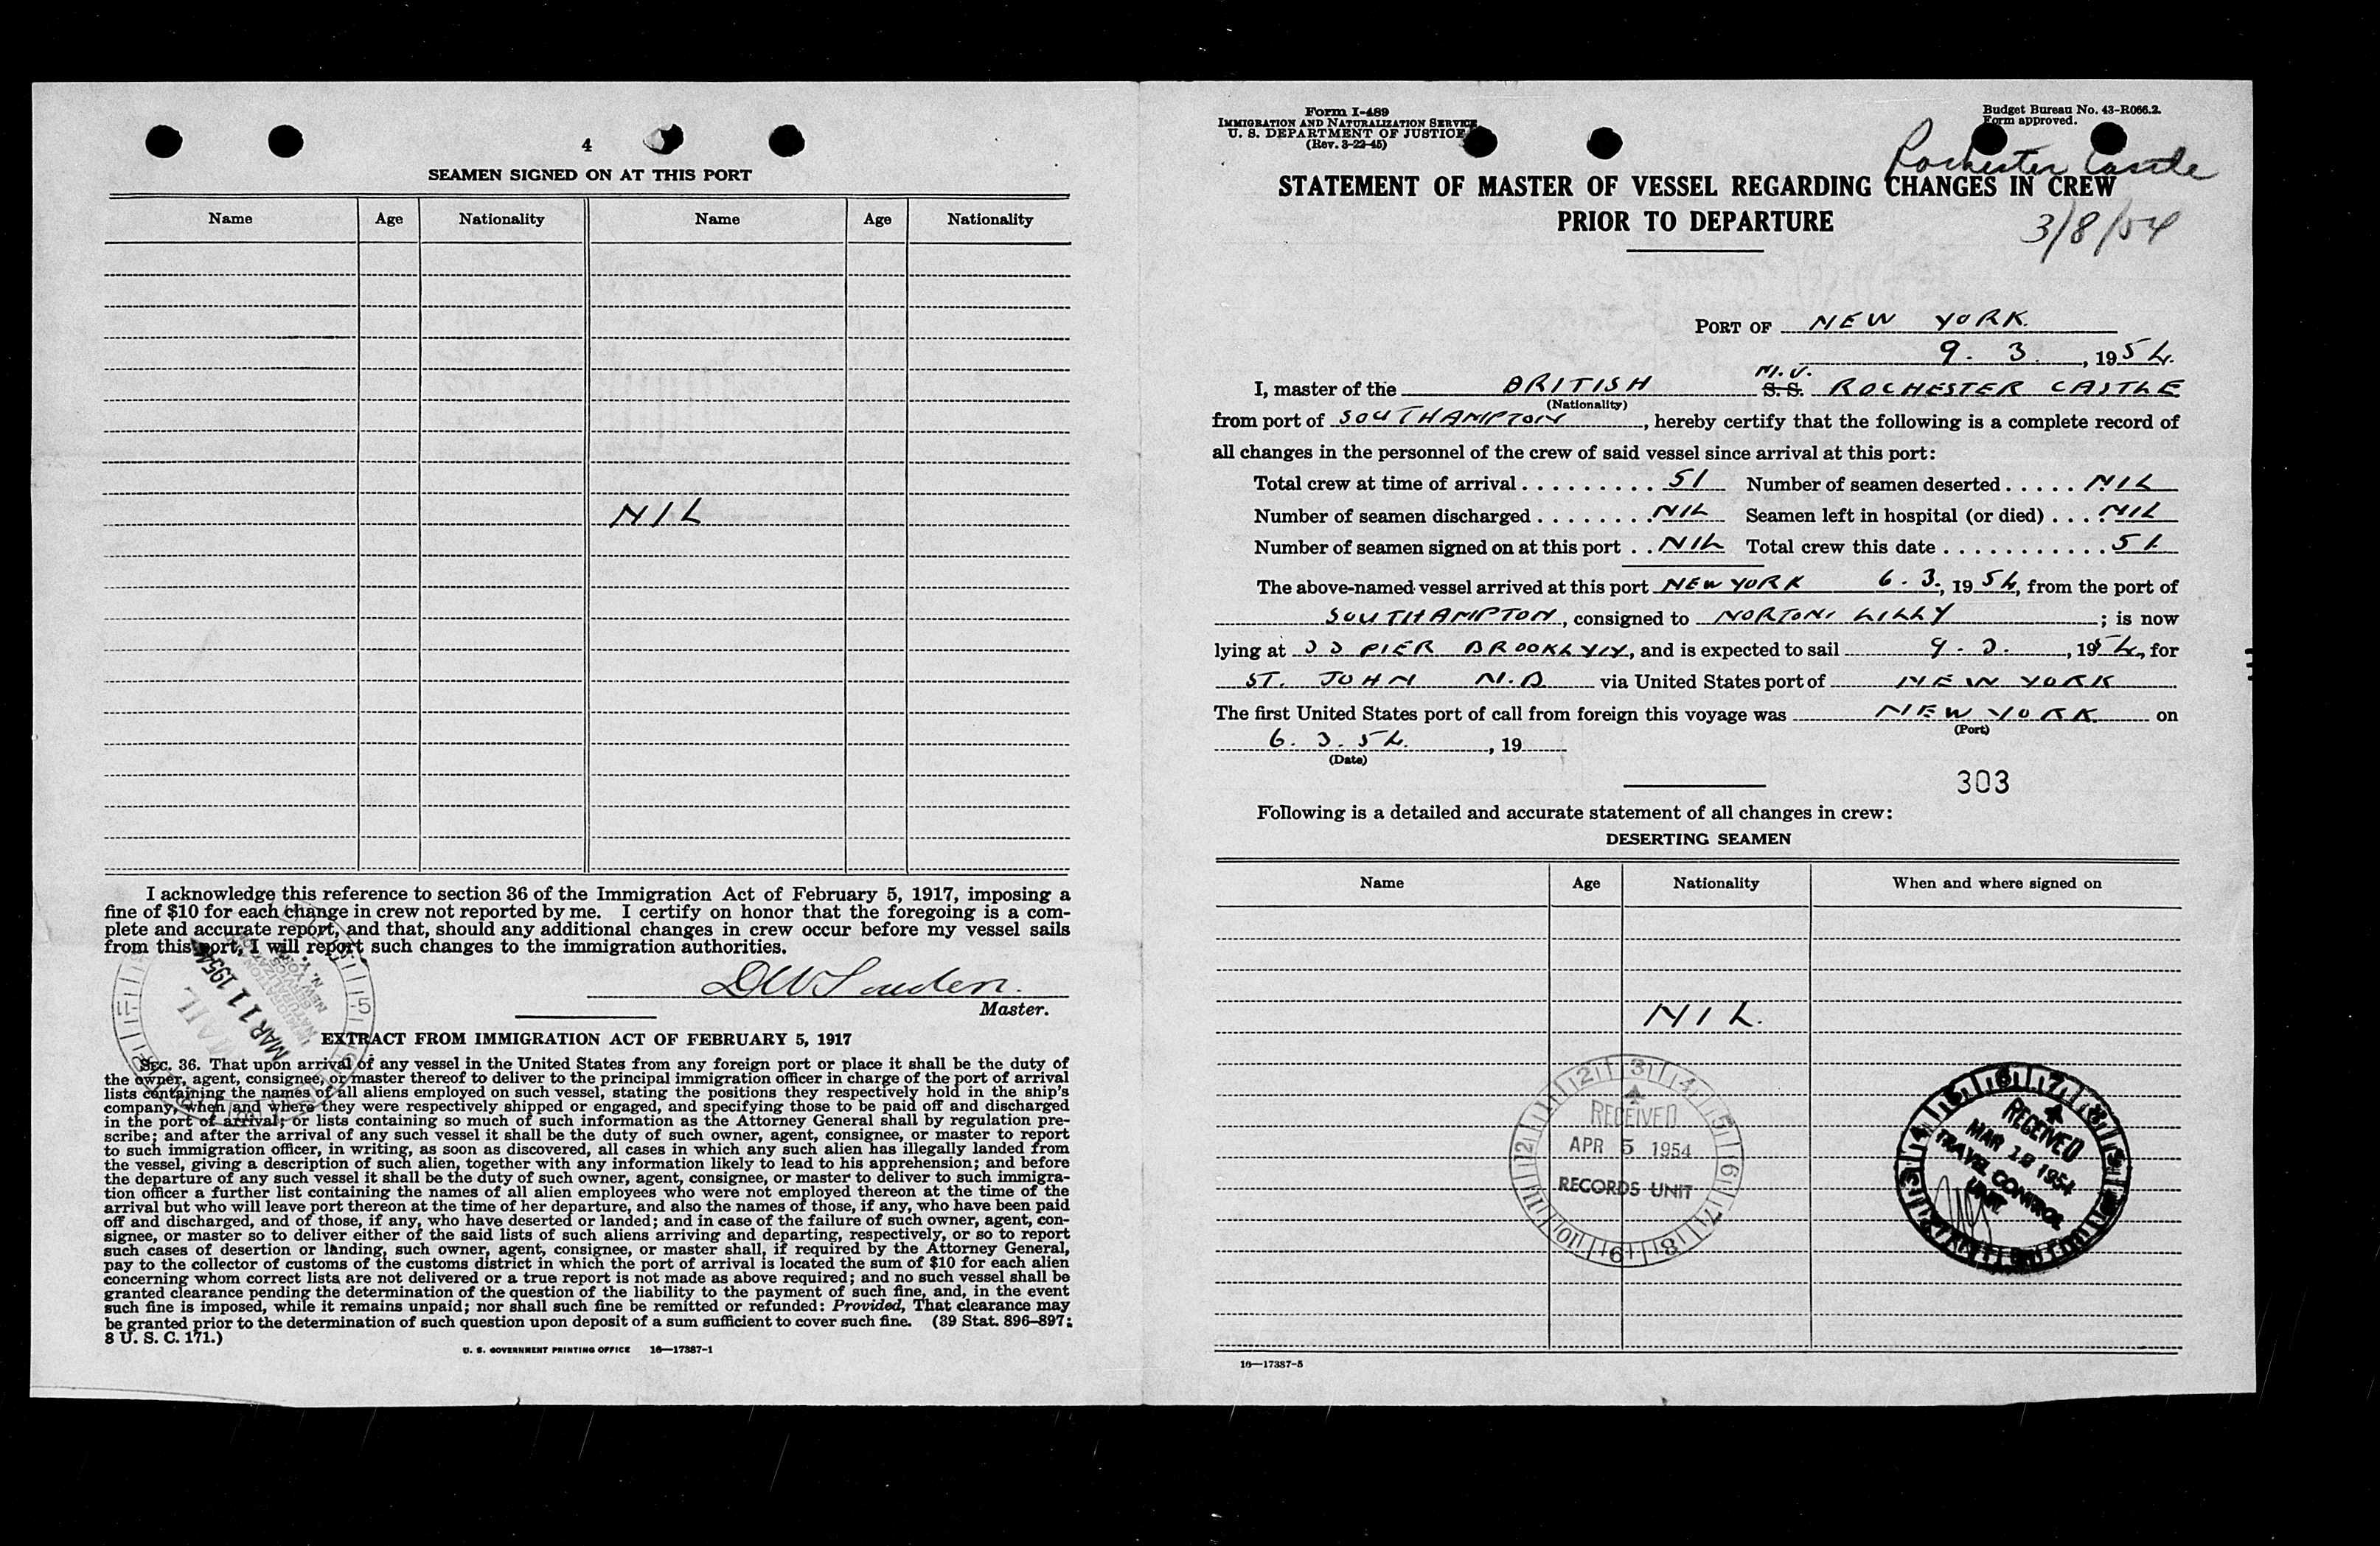 4
SEAMEN SIGNED ON AT THIS PORT
Name Age Nationality Name Age Nationality
NIL
I acknowledge this reference to section 36 of the Immigration Act of February 5, 1917, imposing a
fine of $10 for each change in crew not reported by me. I certify on honor that the foregoing is a com-
plete and accurate report, and that, should any additional changes in crew occur before my vessel sails
from this port, I will report such changes to the immigration authorities.
Master.
MAIL
MAR 11 1954
IMMIGRATION AND
NATURALIZATION
SERVICE
NEW YORK
N. Y.
EXTRACT FROM IMMIGRATION ACT OF FEBRUARY 5, 1917
SEC. 36. That upon arrival of any vessel in the United States from any foreign port or place it shall be the duty of
the owner, agent, consignee, or master thereof to deliver to the principal immigration officer in charge of the port of arrival
lists containing the names of all aliens employed on such vessel, stating the positions they respectively hold in the ship's
company, when and where they were respectively shipped or engaged, and specifying those to be paid off and discharged
in the port of arrival; or lists containing so much of such information as the Attorney General shall by regulation pre-
scribe; and after the arrival of any such vessel it shall be the duty of such owner, agent, consignee, or master to report
to such immigration officer, in writing, as soon as discovered, all cases in which any such alien has illegally landed from
the vessel, giving a description of such alien, together with any information likely to lead to his apprehension; and before
the departure of any such vessel it shall be the duty of such owner, agent, consignee, or master to deliver to such immigra-
tion officer a further list containing the names of all alien employees who were not employed thereon at the time of the
arrival but who will leave port thereon at the time of her departure, and also the names of those, if any, who have been paid
off and discharged, and of those, if any, who have deserted or landed; and in case of the failure of such owner, agent, con-
signee, or master so to deliver either of the said lists of such aliens arriving and departing, respectively, or so to report
such cases of desertion or landing, such owner, agent, consignee, or master shall, if required by the Attorney General,
pay to the collector of customs of the customs district in which the port of arrival is located the sum of $10 for each alien
concerning whom correct lists are not delivered or a true report is not made as above required; and no such vessel shall be
granted clearance pending the determination of the question of the liability to the payment of such fine, and, in the event
such fine is imposed, while it remains unpaid; nor shall such fine be remitted or refunded: Provided, That clearance may
be granted prior to the determination of such question upon deposit of a sum sufficient to cover such fine. (39 Stat. 896–897;
8 U. S. C. 171.)
U. S. GOVERNMENT PRINTING OFFICE 16—17387-1
Form I-489
IMMIGRATION AND NATURALIZATION SERVICE
U. S. DEPARTMENT OF JUSTICE
(Rev. 3-22-45)
Budget Bureau No. 43-R066.2.
Form approved.
Rochester Castle
STATEMENT OF MASTER OF VESSEL REGARDING CHANGES IN CREW
PRIOR TO DEPARTURE
3/8/54
PORT OF NEW YORK.
9. 3., 1954.
I, master of the BRITISH M.V. S.S. ROCHESTER CASTLE
(Nationality)
from port of SOUTHAMPTON, hereby certify that the following is a complete record of
all changes in the personnel of the crew of said vessel since arrival at this port:
Total crew at time of arrival......... 51 Number of seamen deserted..... NIL
Number of seamen discharged........ NIL Seamen left in hospital (or died).... NIL
Number of seamen signed on at this port.. NIL Total crew this date............ 51.
The above-named vessel arrived at this port NEW YORK 6. 3., 1954, from the port of
SOUTHAMPTON, consigned to NORTON LILLY; is now
lying at 33 PIER BROOKLYN, and is expected to sail 9. 3., 1954, for
ST. JOHN N.B. via United States port of NEW YORK
The first United States port of call from foreign this voyage was NEW YORK on
(Port)
6. 3. 54., 19
(Date)
303
Following is a detailed and accurate statement of all changes in crew:
DESERTING SEAMEN
Name Age Nationality When and where signed on
NIL.
RECEIVED
APR 5 1954
RECORDS UNIT
RECEIVED
MAR 1954
TRAVEL CONTROL
UNIT
16—17387-5